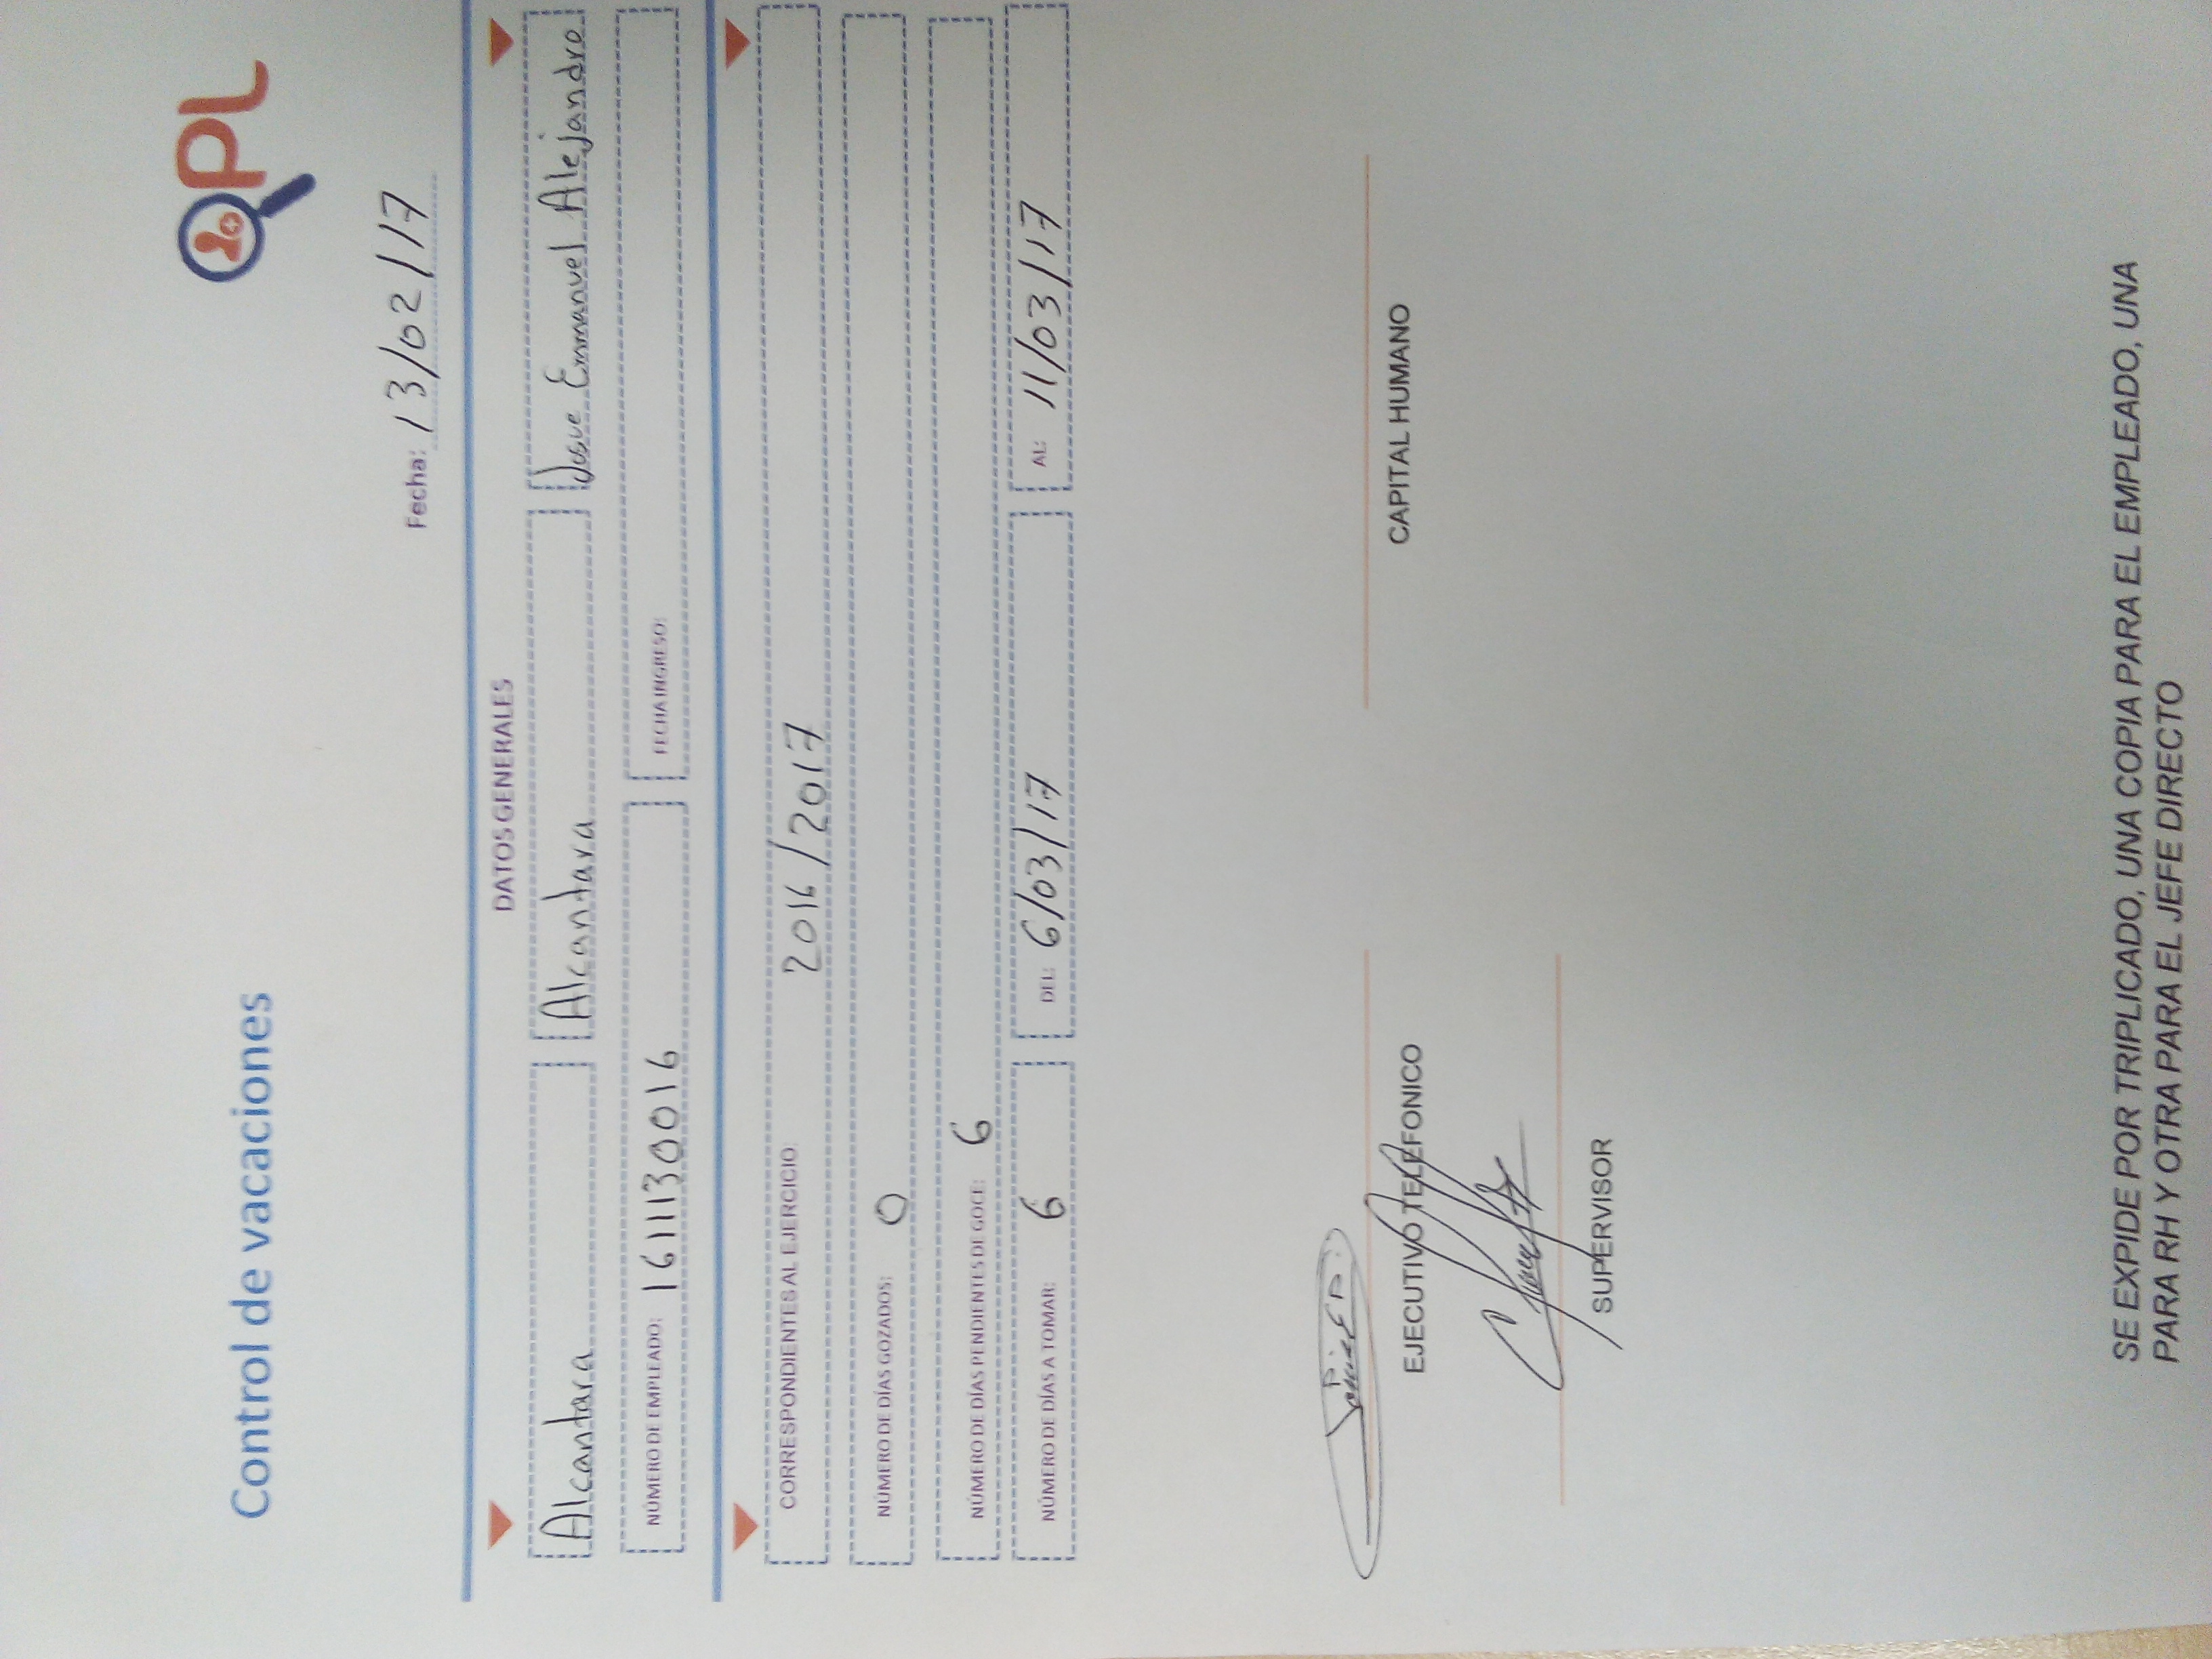 Control de vacaciones
QPL
Fecha: 13/02/17
DATOS GENERALES
Alcantara Alcantara Josue Emmanuel Alejandro
NÚMERO DE EMPLEADO: 161130016 FECHA INGRESO:
CORRESPONDIENTES AL EJERCICIO: 2016/2017
NÚMERO DE DÍAS GOZADOS: 0
NÚMERO DE DÍAS PENDIENTES DE GOCE: 6
NÚMERO DE DÍAS A TOMAR: 6 DEL: 6/03/17 AL: 11/03/17
EJECUTIVO TELEFONICO CAPITAL HUMANO
SUPERVISOR
SE EXPIDE POR TRIPLICADO, UNA COPIA PARA EL EMPLEADO, UNA
PARA RH Y OTRA PARA EL JEFE DIRECTO